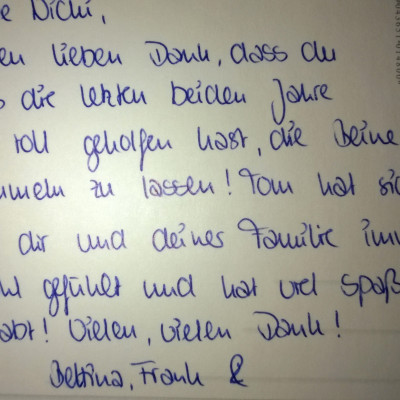 e Dichi,
en lieben Dank, dass du
s die letzten beiden Jahre
toll geholfen hast, die Beine
mmeln zu lassen! Tom hat sic
dir und deiner Familie imm
hl gefühlt und hat viel Spaß
abt! Vielen, vielen Dank!
Bettina, Frank &